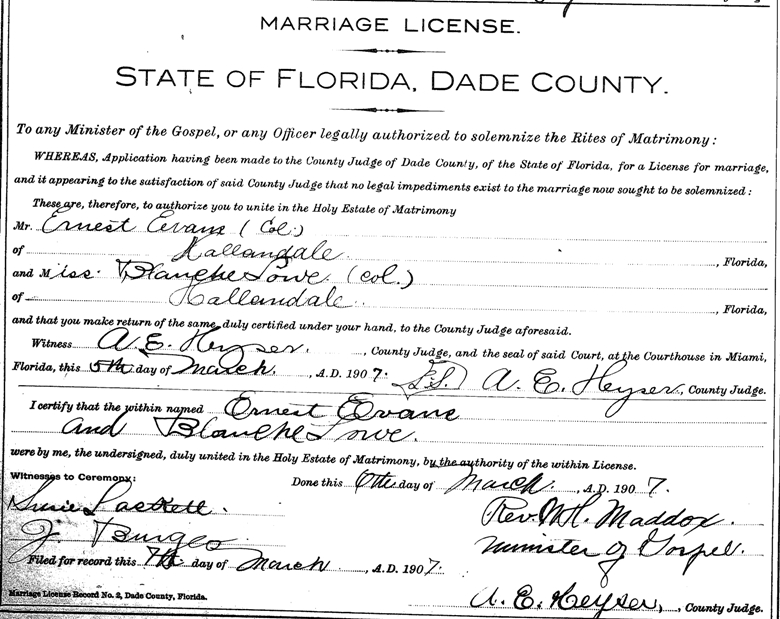 MARRIAGE LICENSE.
STATE OF FLORIDA, DADE COUNTY.
To any Minister of the Gospel, or any Officer legally authorized to solemnize the Rites of Matrimony:
WHEREAS, Application having been made to the County Judge of Dade County, of the State of Florida, for a License for marriage,
and it appearing to the satisfaction of said County Judge that no legal impediments exist to the marriage now sought to be solemnized:
These are, therefore, to authorize you to unite in the Holy Estate of Matrimony
Mr. Ernest Evans (Col.)
of Hallandale, Florida,
and Miss. Blanche Lowe (Col.)
of Hallandale, Florida,
and that you make return of the same, duly certified under your hand, to the County Judge aforesaid.
Witness A. E. Heyser, County Judge, and the seal of said Court, at the Courthouse in Miami,
Florida, this 5th day of March, A.D. 1907. (L.S.) A. E. Heyser, County Judge.
I certify that the within named Ernest Evans
and Blanche Lowe.
were by me, the undersigned, duly united in the Holy Estate of Matrimony, by the authority of the within License.
Witnesses to Ceremony: Done this 6th day of March, A.D. 1907.
Susie Rev. W. H. Maddox.
J. Burges Minister of Gospel.
Filed for record this 7th day of March, A.D. 1907.
Marriage License Record No. 2, Dade County, Florida. A. E. Heyser, County Judge.